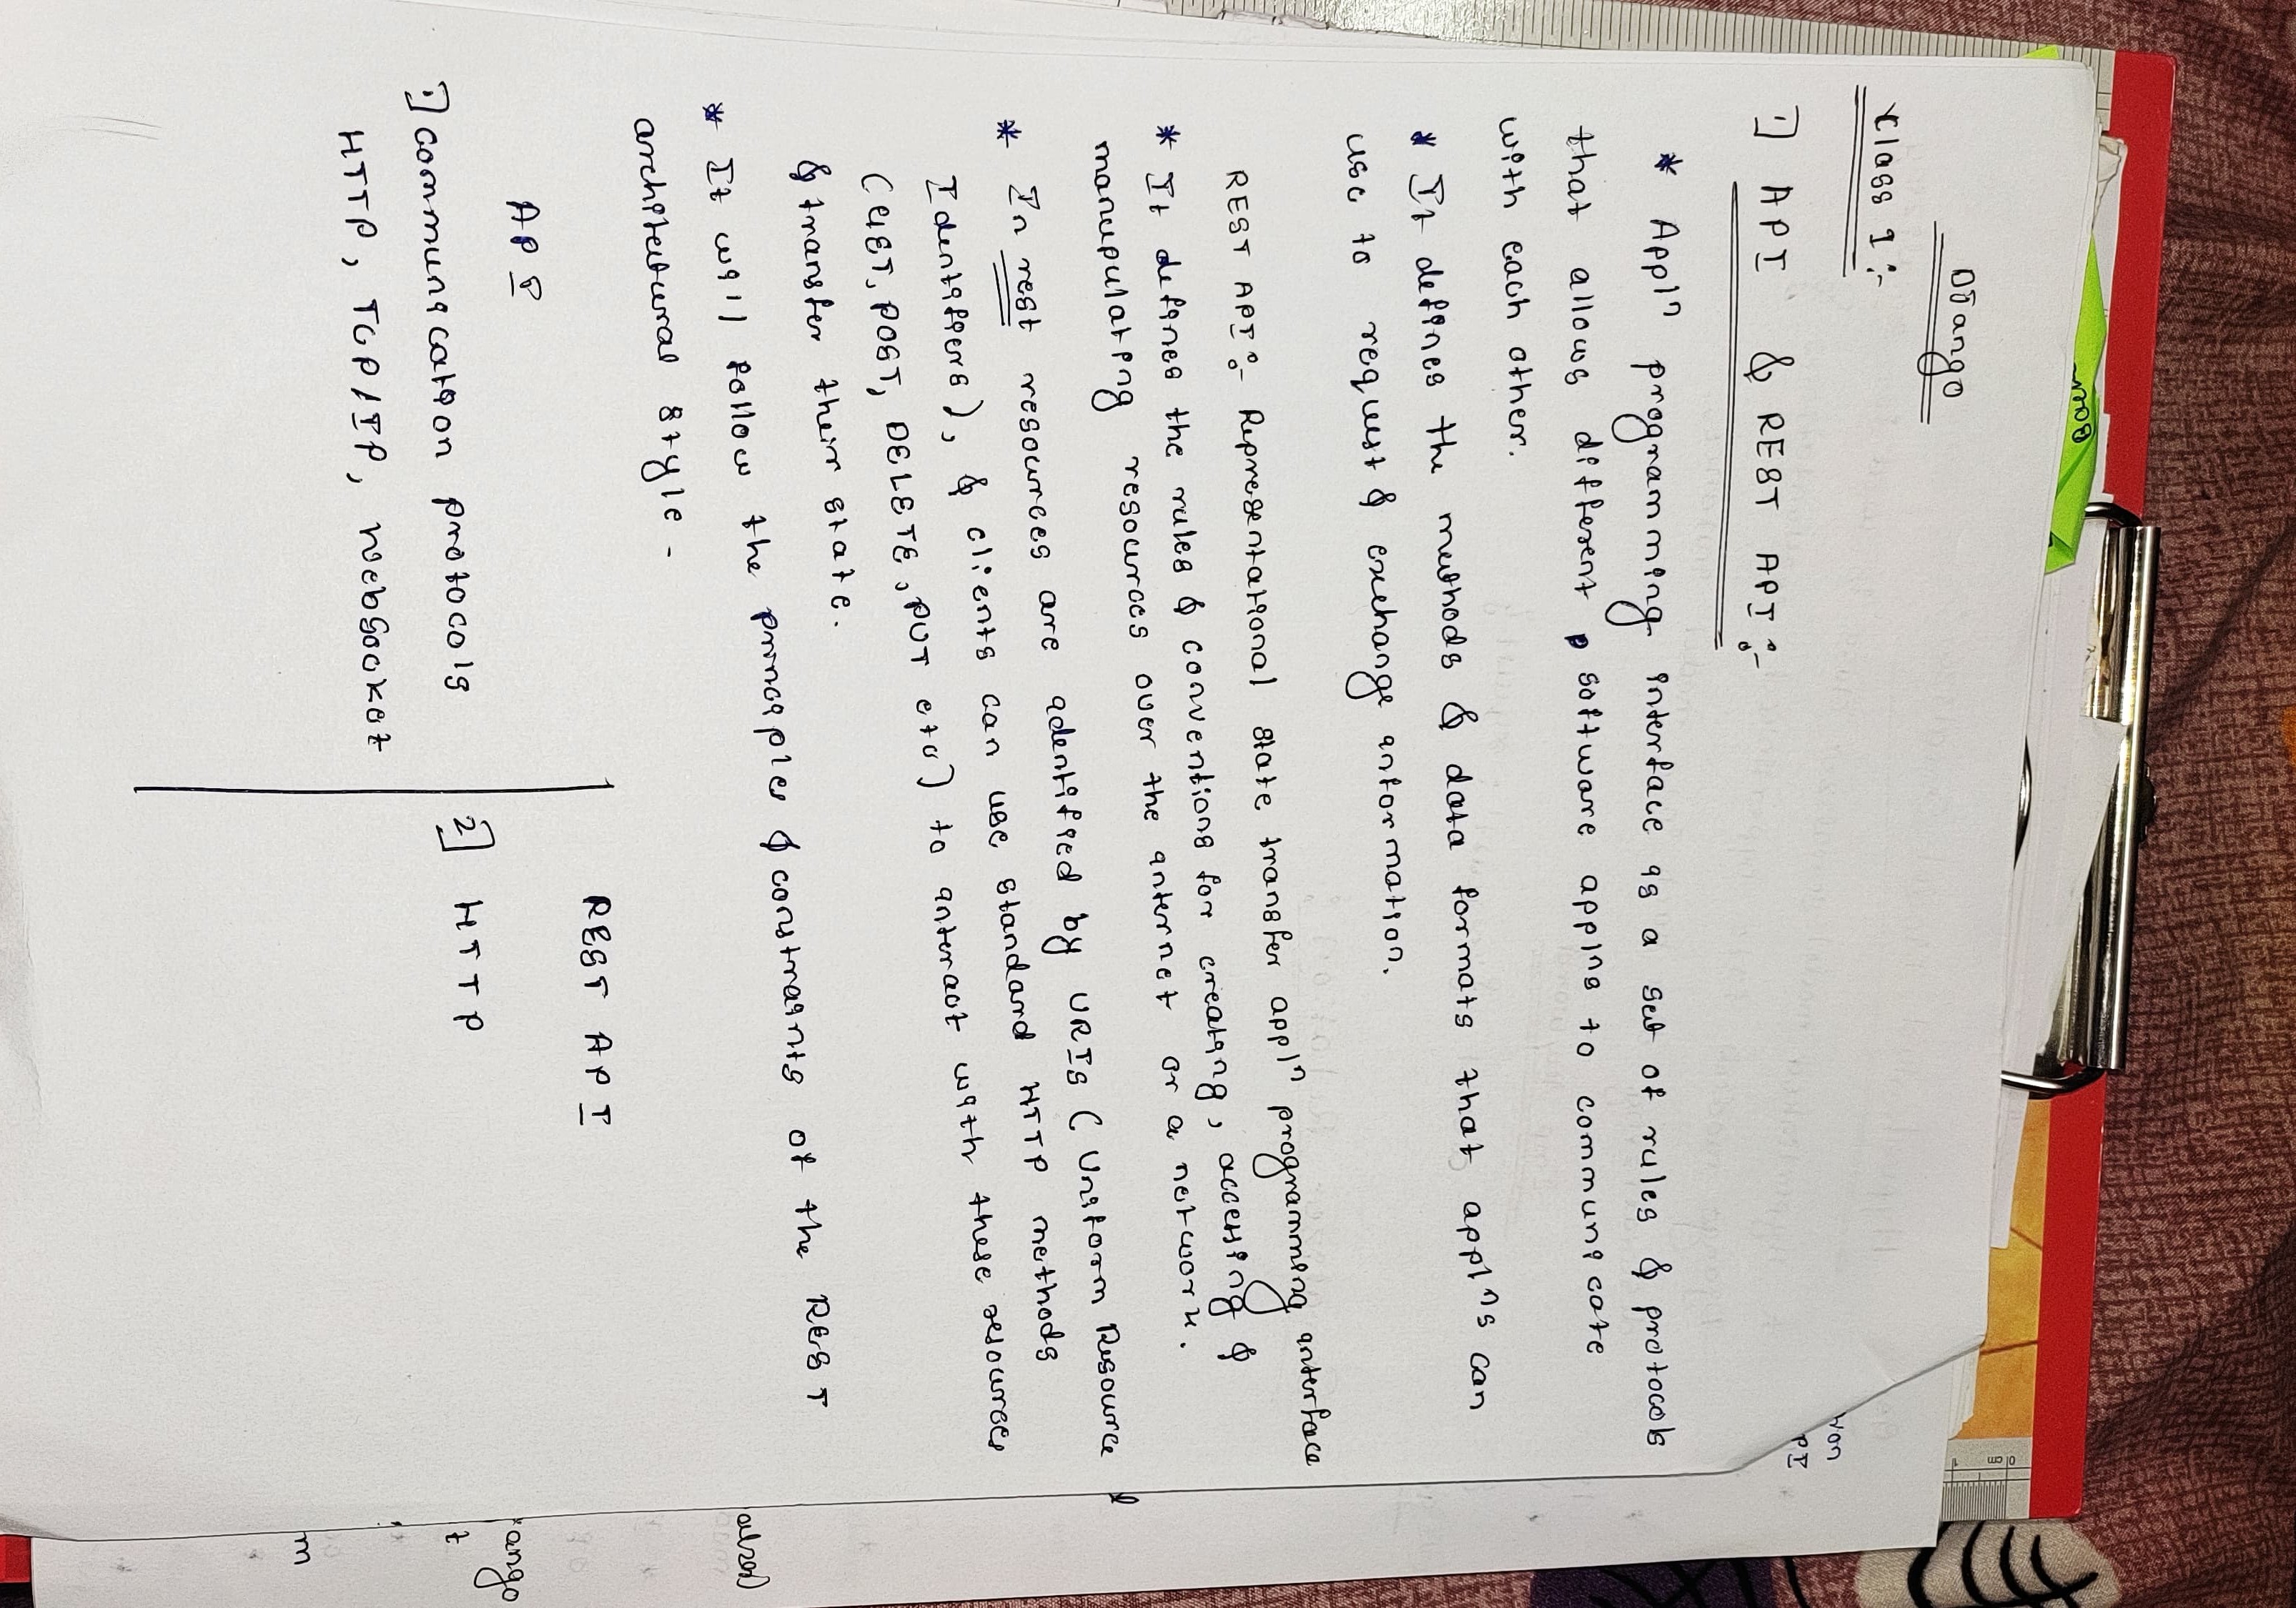 Django
Class 1 :-
1] API & REST API :-
* Appln programming interface is a set of rules & protocols
that allows different software applns to communicate
with each other.
* It defines the methods & data formats that applns can
use to request & exchange information.
REST API :- Representational state transfer appln programming interface
* It defines the rules & conventions for creating, accessing &
manupulating resources over the internet or a network.
* In rest resources are identified by URIs ( Uniform Resource
Identifiers ), & clients can use standard HTTP methods
( GET, POST, DELETE, PUT etc ) to interact with these resources
& transfer their state.
* It will follow the principles & constraints of the REST
architectural style.
API
REST API
1] communication protocols
HTTP, TCP/IP, WebSocket
2] HTTP
PI
ango
t
m
0 cm
1